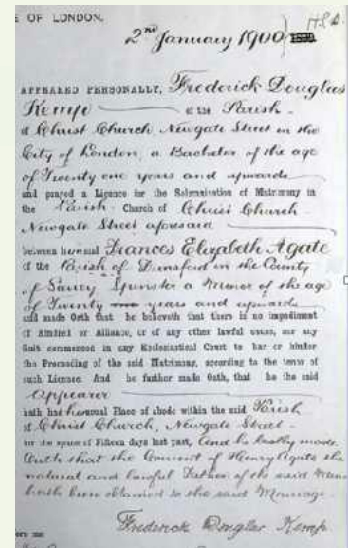 E OF LONDON.
2nd January 1900
APPEARED PERSONALLY, Frederick Douglas
Kemp of the Parish
of Christ Church, Newgate Street in the
City of London, a Bachelor of the age
of Twenty one years and upwards
and prayed a Licence for the Solemnization of Matrimony in
the Parish Church of Christ Church
Newgate Street aforesaid
between him and Frances Elizabeth Agate
of the Parish of Dunsford in the County
of Surrey Spinster a Minor of the age
of Twenty years and upwards
and made Oath that he believeth that there is no impediment
of Kindred or Alliance, or of any other lawful cause, nor any
Suit commenced in any Ecclesiastical Court to bar or hinder
the Proceeding of the said Matrimony, according to the tenor of
such Licence. And he further made Oath, that he the said
Appearer
hath had his usual Place of abode within the said Parish
of Christ Church, Newgate Street
for the space of Fifteen days last past, And he lastly made
Oath that the Consent of Henry Agate the
natural and lawful Father of the said Minor
hath been obtained to the said Marriage.
Frederick Douglas Kemp